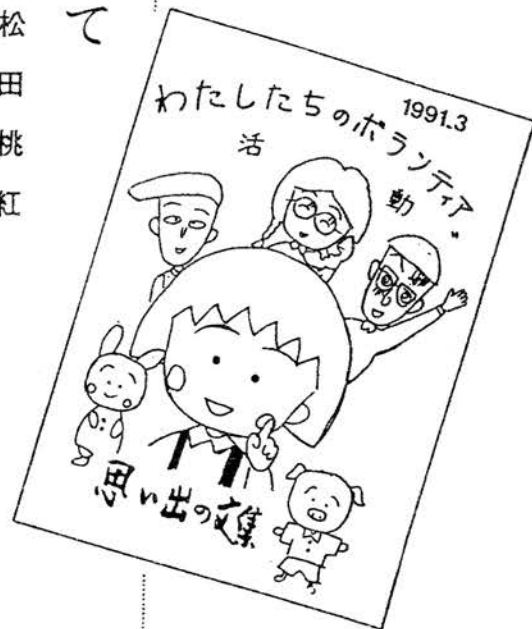 て
松田桃紅
1991.3
わたしたちのボランティア
活動
思い出の文集